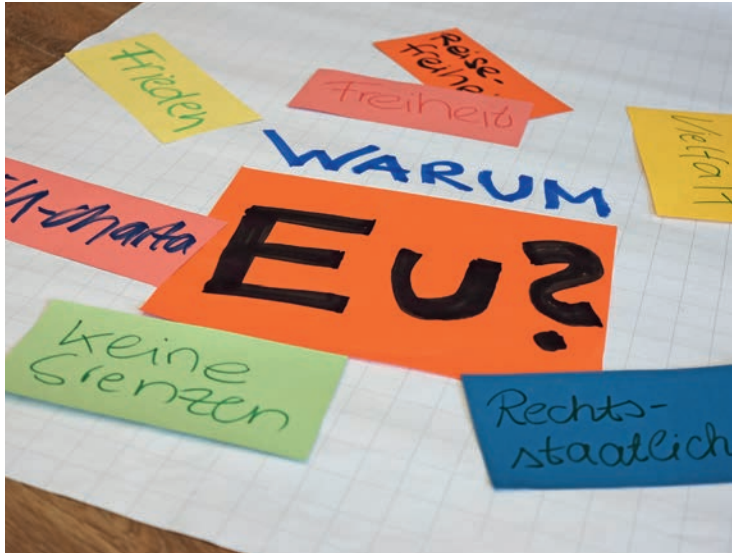 Frieden
Reise-
freihei
Freiheit
Vielfalt
WARUM
EU-Charta
Eu?
keine
Grenzen
Rechts-
staatlich